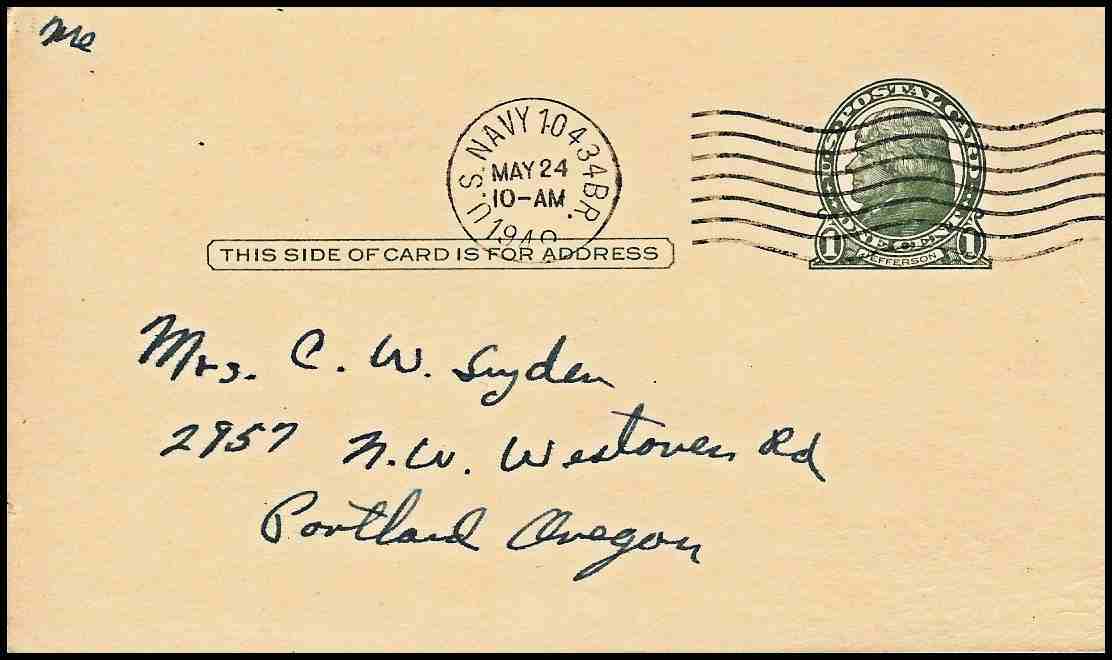 me
U.S. NAVY 10434 BR.
MAY 24
10-AM
1949
U·S·POSTAL CARD
ONE CENT
1 1
JEFFERSON
THIS SIDE OF CARD IS FOR ADDRESS
Mrs. C. W. Snyder
2957 N.W. Westover Rd
Portland Oregon